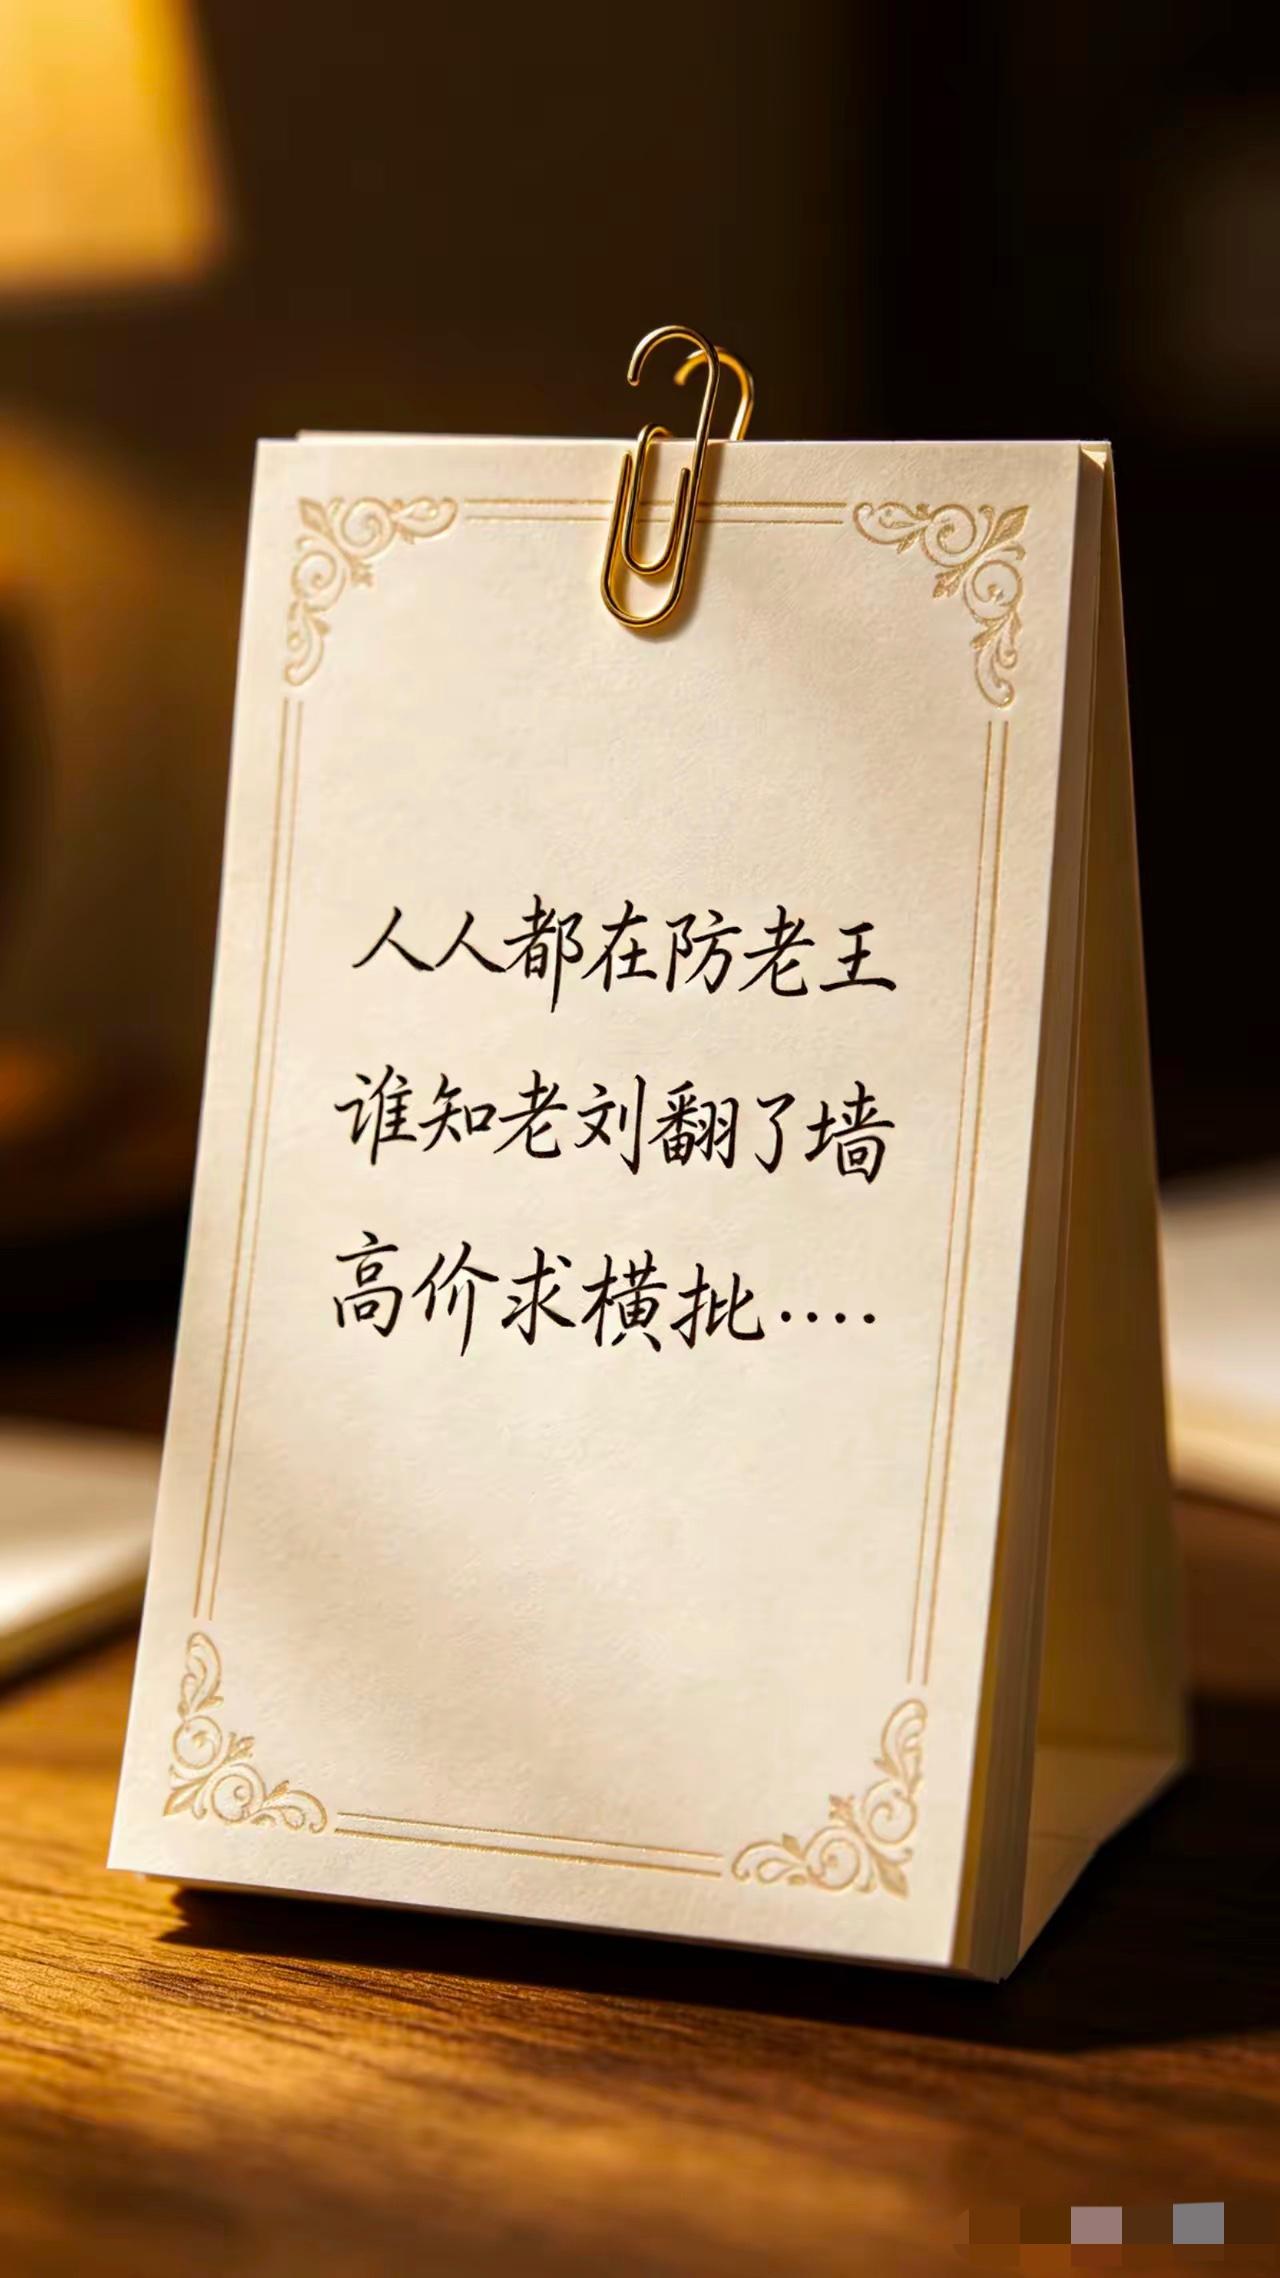 人人都在防老王
谁知老刘翻了墙
高价求横批....